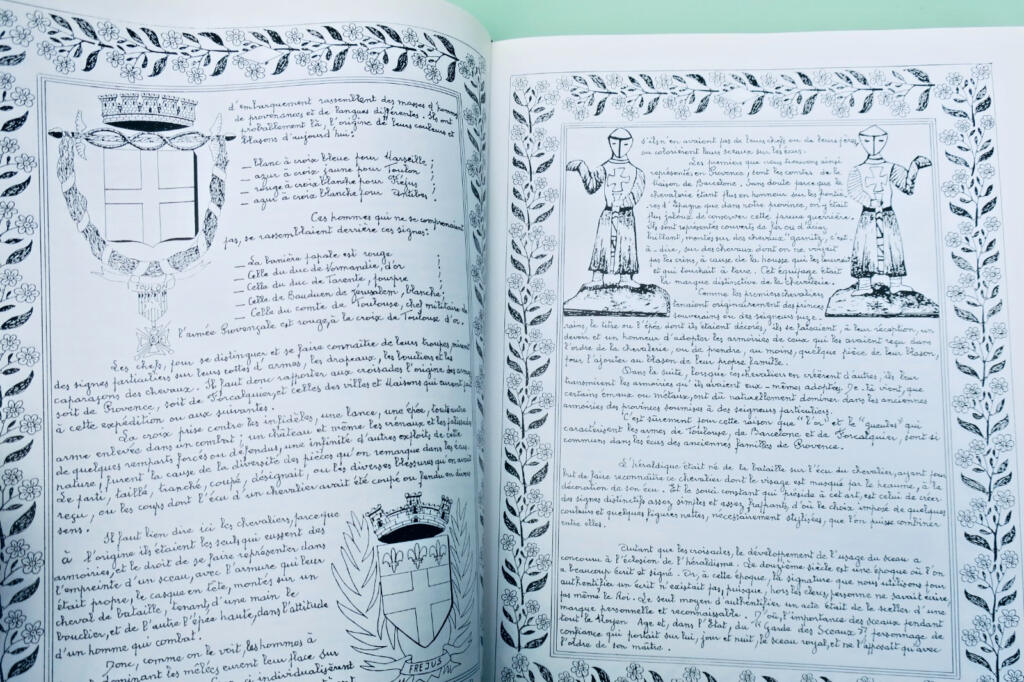 d'embarquement rassemblent des masses d'hommes
de provenances et de langues différentes. Ils ont
probablement là l'origine de leurs couleurs et
blasons d'aujourd'hui :
— blanc à croix bleue pour Marseille ;
— azur à croix jaune pour Toulon ;
— rouge à croix blanche pour Fréjus ;
— azur à croix blanche pour Antibes.
Ces hommes qui ne se comprenaient
pas, se rassemblaient derrière ces signes :
— La banière papale est rouge ;
— Celle du duc de Normandie, d'or ;
— Celle du duc de Tarente, pourpre ;
— Celle de Bauduen de Jérusalem, blanche ;
— Celle du comte de Toulouse, chef militaire de
l'armée Provençale est rouge, à la croix de Toulouse d'or.
Les chefs, pour se distinguer et se faire connaître de leurs troupes, mirent
des signes particuliers sur leurs cottes d'armes, les drapeaux, les boucliers et les
caparassons des chevaux. Il faut donc rapporter aux croisades l'origine des armes
soit de Provence, soit de Forcalquier, et celles des villes et Maisons qui eurent part
à cette expédition ou aux suivantes.
La croix prise contre les infidèles, une lance, une épée, toute autre
arme enlevée dans un combat ; un château et même les crénaux et les palissades
de quelques remparts forcés ou défendus, une infinité d'autres exploits de cette
nature, furent la cause de la diversité des pièces qu'on remarque dans les écus.
Le parti, taillé, tranché, coupé, désignait, ou les diverses blessures qu'on avait
reçu, ou les coups dont l'écu d'un chevalier avait été coupé ou fendu en divers
sens.
Il faut bien dire ici les chevaliers, parce que
à l'origine ils étaient les seuls qui eussent des
armoiries, et le droit de se faire représenter dans
l'empreinte d'un sceau, avec l'armure qui leur
était propre, le casque en tête, montés sur un
cheval de bataille, tenant d'une main le
bouclier, et de l'autre l'épée haute, dans l'attitude
d'un homme qui combat.
Donc, comme on le voit, les hommes à
dominant les mêlées eurent leur place sur
ceci individualisèrent
FREJUS
s'ils n'en avaient pas de leurs chefs ou de leurs pères,
ou colorièrent leurs sceaux sur les écus.
Les premiers que nous trouvons ainsi
représentés en Provence, sont les comtes de la
Maison de Barcelone. Sans doute parce que la
chevalerie étant plus en honneur sur les frontiè-
res d'Espagne que dans notre province, on y était
plus jaloux de conserver cette parure guerrière.
Ils sont représentés couverts de fer ou d'acier
brillant, montés sur des chevaux "garnits", c'est-
à-dire, sur des chevaux dont on ne voyait
pas les crins, à cause de la housse qui les couvrait
et qui touchait à terre. Cet équipage était
la marque distinctive de la chevalerie.
Comme les premiers chevaliers
tenaient originairement des princes
souverains ou des seigneurs suze-
rains, le titre ou l'épée dont ils étaient décorés, ils se faisaient, à leur réception, un
devoir et un honneur d'adopter les armoiries de ceux qui les avaient reçu dans
l'ordre de la chevalerie, ou de prendre, au moins, quelque pièce de leur blason,
pour l'ajouter au blason de leur propre famille.
Dans la suite, lorsque ces chevaliers en créèrent d'autres, ils leur
transmirent les armoiries qu'ils avaient eux-mêmes adoptées. De là vient, que
certains émaux ou métaux, ont dû naturellement dominer dans les anciennes
armoiries des provinces soumises à des seigneurs particuliers.
C'est sûrement pour cette raison que "l'or" et le "gueules" qui
caractérisent les armes de Toulouse, de Barcelone et de Forcalquier, sont si
communs dans les écus des anciennes familles de Provence.
L'héraldique était né de la bataille sur l'écu du chevalier, ayant pour
but de faire reconnaître ce chevalier dont le visage est masqué par le heaume, à la
décoration de son écu. Et le souci constant qui préside à cet art, est celui de créer
des signes distinctifs assez simples et assez frappant, d'où le choix imposé de quelques
couleurs et quelques figures nettes, nécessairement stylisées, que l'on puisse combiner
entre elles.
Autant que les croisades, le développement de l'usage du sceau a
concouru à l'éclosion de l'héraldisme. Le douzième siècle est une époque où l'on
a beaucoup écrit et signé. Or, à cette époque, la signature que nous utilisons pour
authentifier un écrit n'existait pas, puisque, hors les clercs, personne ne savait écrire,
pas même le Roi. Le seul moyen d'authentifier un acte était de le sceller d'une
marque personnelle et reconnaissable. D'où, l'importance des sceaux pendant
tout le Moyen Age et, dans l'Etat, du "Garde des Sceaux", personnage de
confiance qui portait sur lui, jour et nuit, le sceau royal, et ne l'apposait qu'avec
l'ordre de son maître.